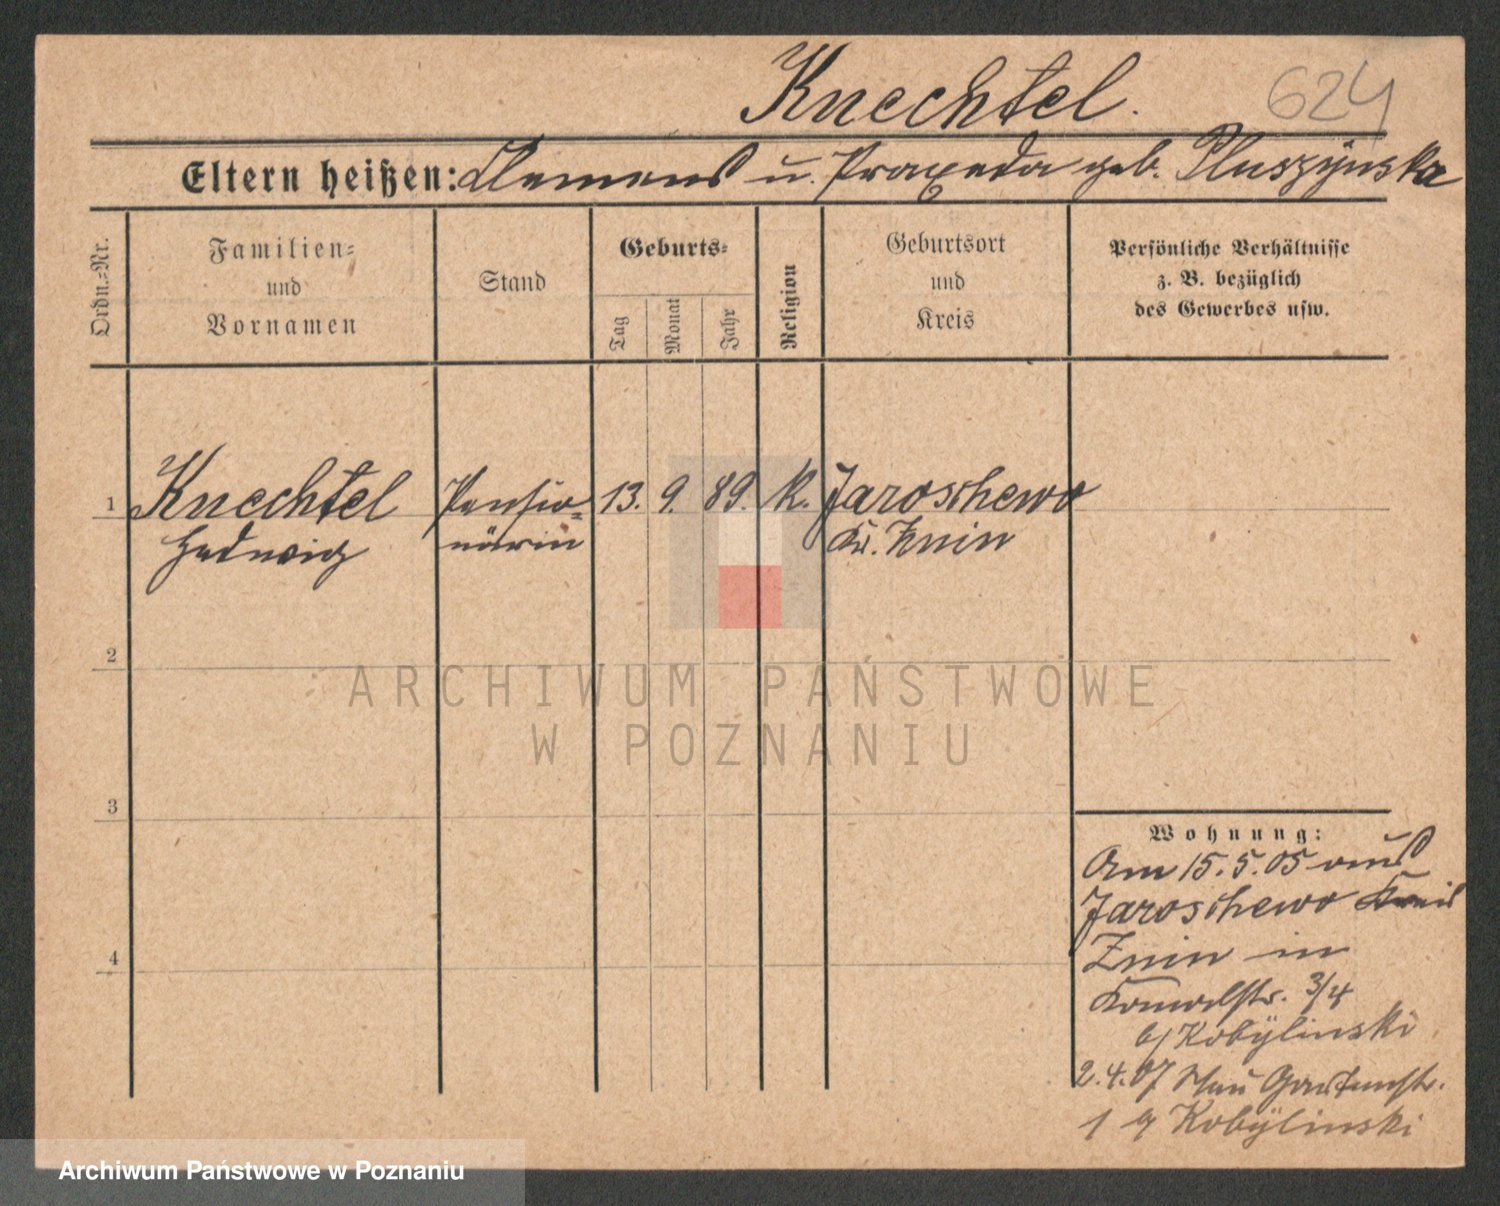 Knechtel.
624
Eltern heißen: Clemens u. Praxeda geb. Pluszÿnska
Ordn.-Nr.
Familien-
und
Vornamen
Stand
Geburts-
Tag
Monat
Jahr
Religion
Geburtsort
und
Kreis
Persönliche Verhältnisse
z. B. bezüglich
des Gewerbes usw.
1 Knechtel Pensio- 13. 9. 89. K. Jaroschewo
Hedwig närin Kr. Znin
2
ARCHIWUM PAŃSTWOWE
W POZNANIU
3
Wohnung:
Am 15.5.05 aus
Jaroschewo Kreis
Znin in
Kanalstr. 3/4
b/ Kobÿlinski
4
2.4.07 Neu Gartenstr.
1 Kobÿlinski
Archiwum Państwowe w Poznaniu